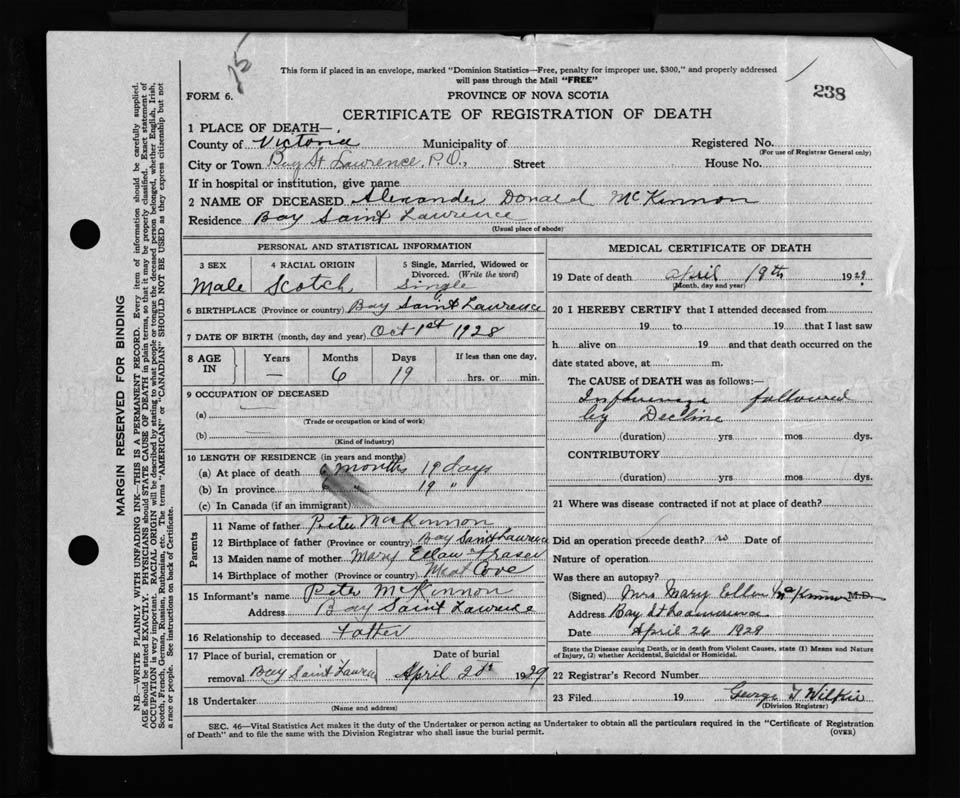 75
This form if placed in an envelope, marked "Dominion Statistics—Free, penalty for improper use, $300," and properly addressed
will pass through the Mail "FREE"
238
FORM 6.
PROVINCE OF NOVA SCOTIA
CERTIFICATE OF REGISTRATION OF DEATH
1 PLACE OF DEATH—
County of Victoria Municipality of Registered No.
(For use of Registrar General only)
City or Town Bay St Lawrence, P.O., Street House No.
If in hospital or institution, give name
2 NAME OF DECEASED Alexander Donald McKinnon
Residence Bay Saint Lawrence
(Usual place of abode)
PERSONAL AND STATISTICAL INFORMATION
3 SEX 4 RACIAL ORIGIN 5 Single, Married, Widowed or
Divorced. (Write the word)
Male Scotch Single
6 BIRTHPLACE (Province or country) Bay Saint Lawrence
7 DATE OF BIRTH (month, day and year) Oct 1st 1928
8 AGE IN Years Months Days If less than one day,
— 6 19 hrs. or min.
9 OCCUPATION OF DECEASED
(a)
(Trade or occupation or kind of work)
(b)
(Kind of industry)
10 LENGTH OF RESIDENCE (in years and months)
(a) At place of death 6 months 19 days
(b) In province 6 " 19 "
(c) In Canada (if an immigrant)
Parents
11 Name of father Peter MacKinnon
12 Birthplace of father (Province or country) Bay Saint Lawrence
13 Maiden name of mother Mary Ellan Fraser
14 Birthplace of mother (Province or country) Meat Cove
15 Informant's name Peter McKinnon
Address Bay Saint Lawrence
16 Relationship to deceased Father
17 Place of burial, cremation or Date of burial
removal Bay Saint Lawrence April 20th 1929
18 Undertaker
(Name and address)
MEDICAL CERTIFICATE OF DEATH
19 Date of death April 19th 1929.
(Month, day and year)
20 I HEREBY CERTIFY that I attended deceased from
19 to 19 that I last saw
h alive on 19 and that death occurred on the
date stated above, at m.
The CAUSE of DEATH was as follows:—
Influenza followed
by Decline
(duration) yrs. mos dys.
CONTRIBUTORY
(duration) yrs. mos. dys.
21 Where was disease contracted if not at place of death?
Did an operation precede death? no Date of
Nature of operation
Was there an autopsy?
(Signed) Mrs Mary Ellen McKinnon M.D.
Address Bay St Lawrence
Date April 26 1929
State the Disease causing Death, or in death from Violent Causes, state (1) Means and Nature
of Injury, (2) whether Accidental, Suicidal or Homicidal.
22 Registrar's Record Number
23 Filed 19 George T Wilkie
(Division Registrar)
SEC. 46—Vital Statistics Act makes it the duty of the Undertaker or person acting as Undertaker to obtain all the particulars required in the "Certificate of Registration
of Death" and to file the same with the Division Registrar who shall issue the burial permit.
(OVER)
MARGIN RESERVED FOR BINDING
N.B.—WRITE PLAINLY WITH UNFADING INK—THIS IS A PERMANENT RECORD. Every item of information should be carefully supplied.
AGE should be stated EXACTLY. PHYSICIANS should STATE CAUSE OF DEATH in plain terms, so that it may be properly classified. Exact statement of
OCCUPATION is very important. RACIAL ORIGIN will be described by stating to what people or tongue the deceased person belonged, whether English, Irish,
Scotch, French, German, Russian, Ruthenian, etc. The terms "AMERICAN" or "CANADIAN" SHOULD NOT BE USED as they express citizenship but not
a race or people. See instructions on back of Certificate.